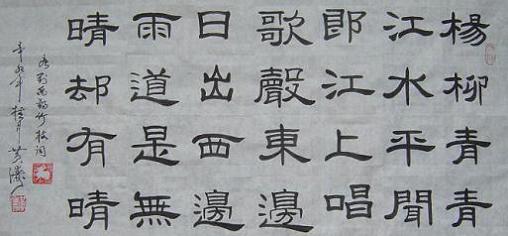 楊柳青青
江水平聞
郎江上唱
歌聲東邊
日出西邊
雨道是無
晴却有晴
劉禹錫竹枝詞